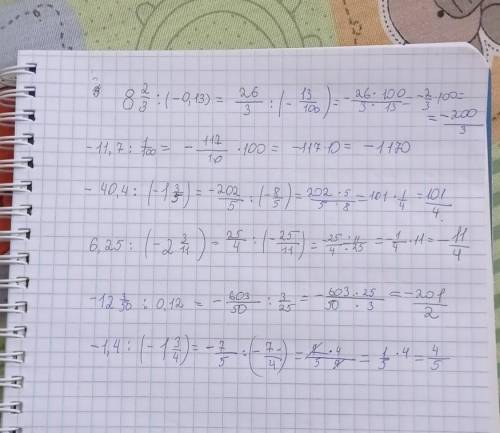 8 2/3 : (-0,13) = 26/3 : (- 13/100) = - 26 · 100 / 3 · 13 = - 2/3 · 100 =
= -200/3
-11,7 : 1/100 = - 117/10 · 100 = -117·10 = -1170
- 40,4 : (-1 3/5) = -202/5 : (- 8/5) = 202 · 5 / 5 · 8 = 101 · 1/4 = 101/4
6,25 : (-2 3/11) = 25/4 : (- 25/11) = -25 · 11 / 4 · 25 = - 1/4 · 11 = - 11/4
-12 1/50 : 0,12 = - 603/50 : 3/25 = - 603 · 25 / 50 · 3 = -201/2
-1,4 : (-1 3/4) = - 7/5 : (- 7/4) = 7 · 4 / 5 · 7 = 1/5 · 4 = 4/5